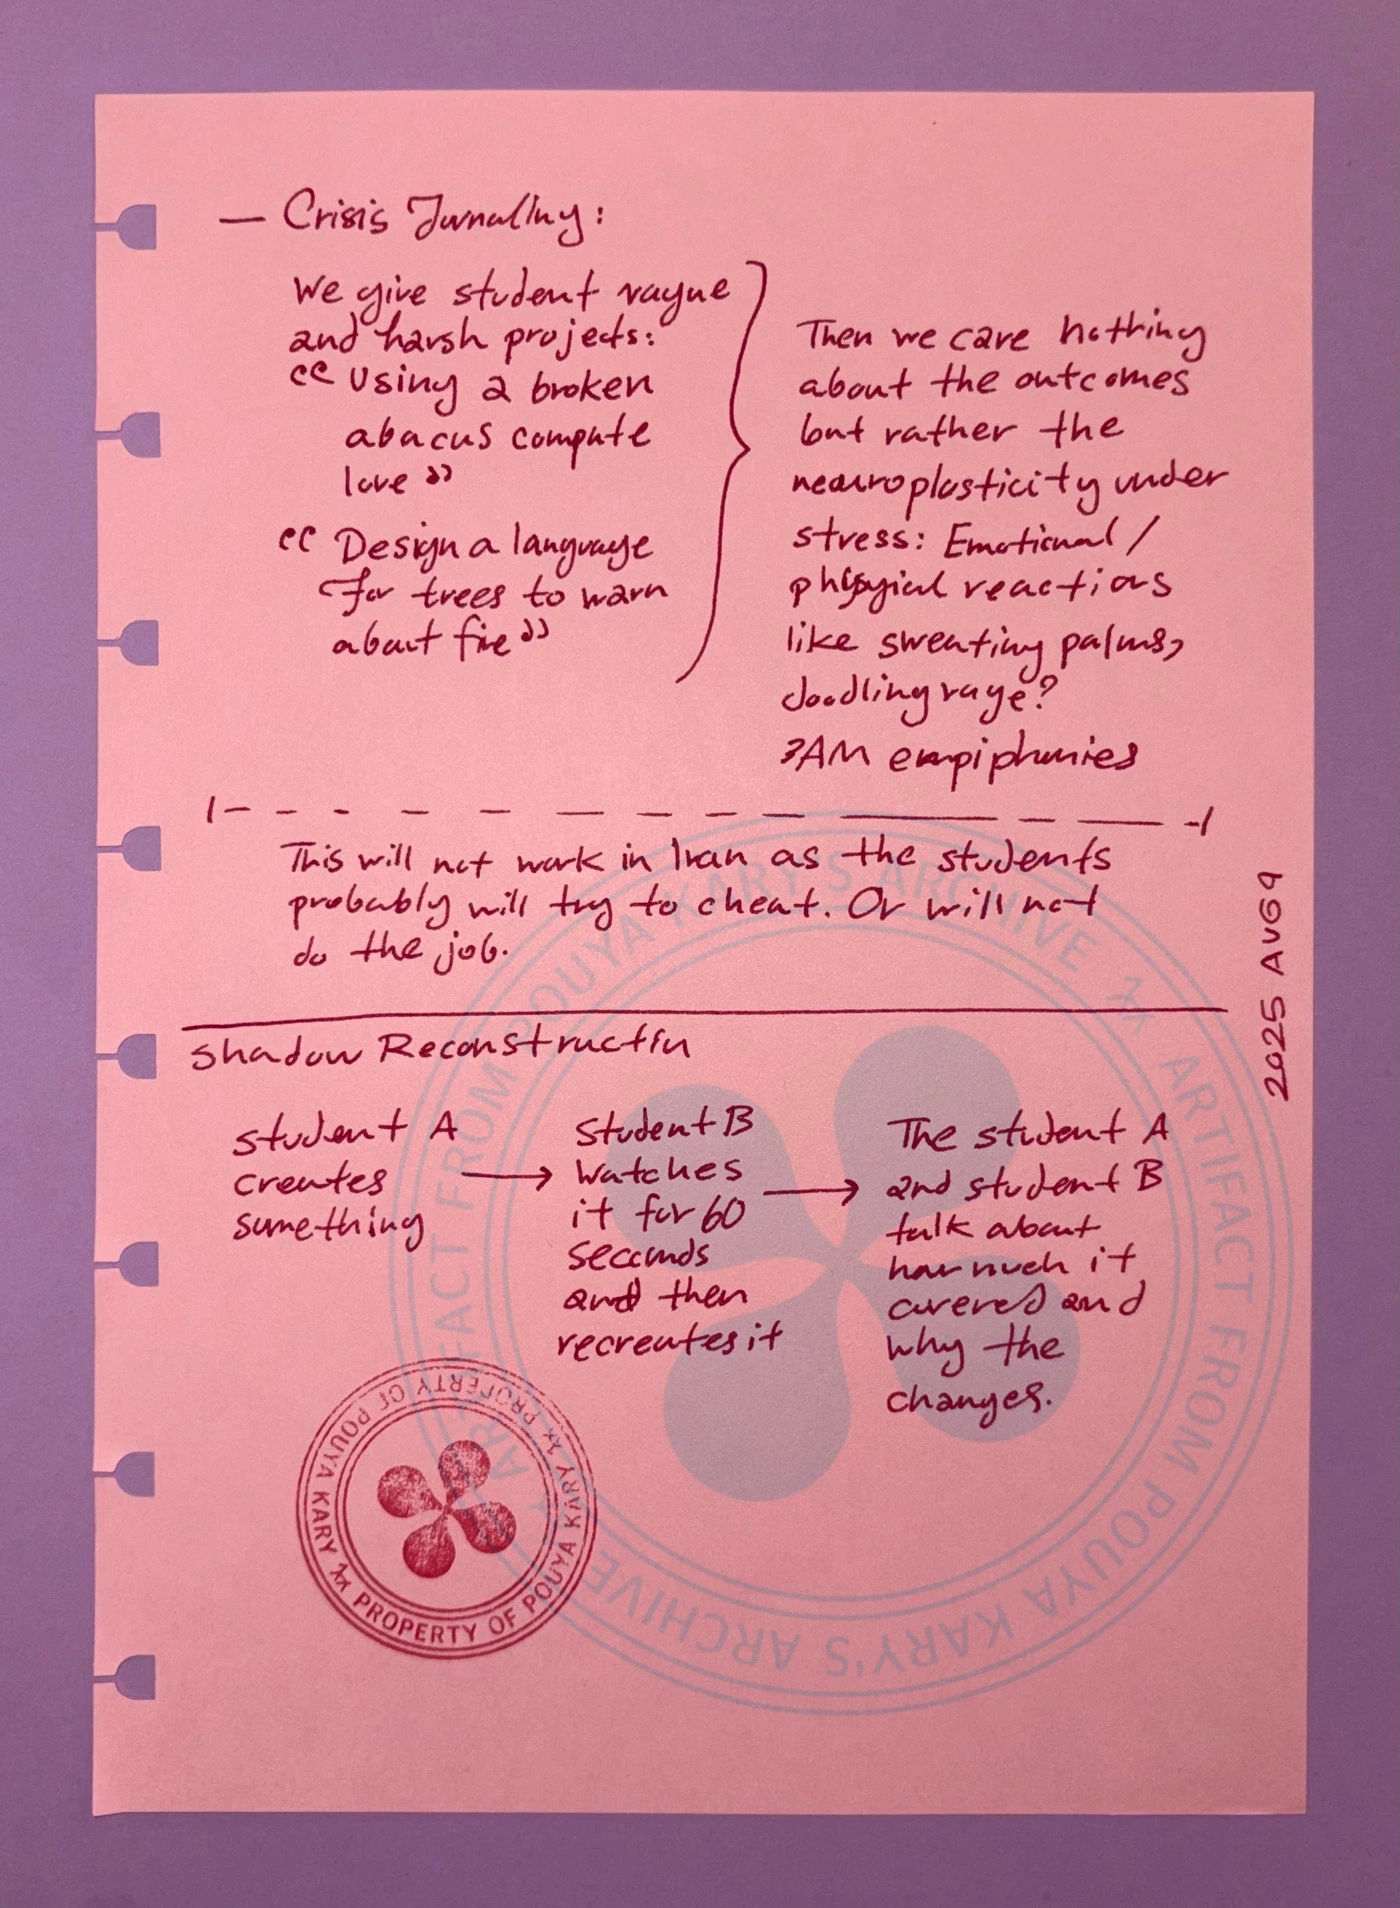 — Crisis Jurnaling:
We give student vague
and harsh projects:
“Using a broken
abacus compute
love”
“Design a language
for trees to warn
about fire”
Then we care nothing
about the outcomes
but rather the
neauroplasticity under
stress: Emotional/
physical reactions
like sweating palms,
doodling rage?
3AM empiphanies
This will not work in Iran as the students
probably will try to cheat. Or will not
do the job.
2025 AUG 9
Shadow Reconstructin
student A
creates
something
Student B
watches
it for 60
seconds
and then
recreates it
The student A
and student B
talk about
how much it
covered and
why the
changes.
PROPERTY OF POUYA KARY PROPERTY OF POUYA KARY
ARTIFACT FROM POUYA KARY'S ARCHIVE ARTIFACT FROM POUYA KARY'S ARCHIVE